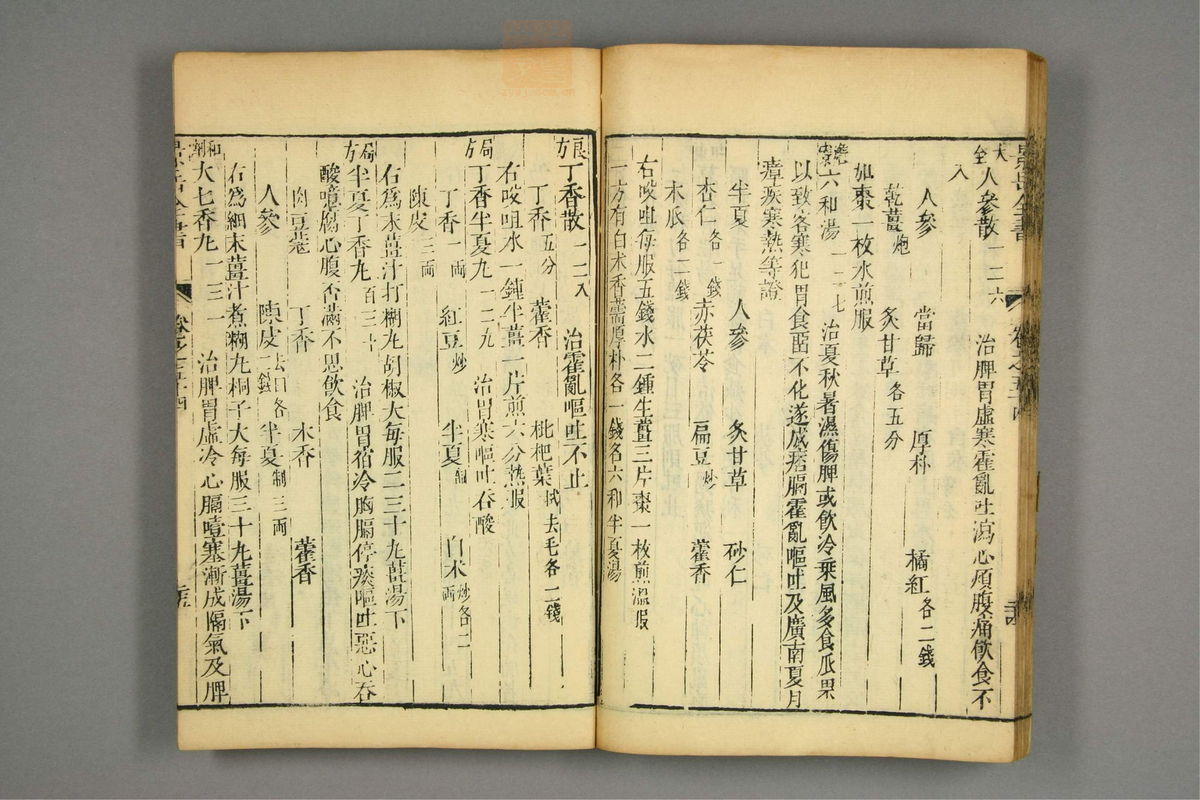 景岳全書 卷之五十四
大全 人參散 一二六 治脾胃虛寒霍亂吐瀉心煩腹痛飲食不
入
人參 當歸 厚朴 橘紅 各二錢
乾薑 炮 炙甘草 各五分
如棗一枚水煎服
六和湯 一二七 治夏秋暑濕傷脾或飲冷乘風多食瓜果
以致客寒犯胃食畱不化遂成痞膈霍亂嘔吐及廣南夏月
瘴疾寒熱等證
半夏 人參 炙甘草 砂仁
杏仁 各一錢 赤茯苓 扁豆 炒 藿香
木瓜 各二錢
右㕮咀每服五錢水二鍾生薑三片棗一枚煎溫服
一方有白术香薷厚朴各一錢名六和半夏湯
良方 丁香散 一二八 治霍亂嘔吐不止
丁香 五分 藿香 枇杷葉 拭去毛各二錢
右㕮咀水一鍾半薑一片煎六分熱服
局方 丁香半夏丸 一二九 治胃寒嘔吐吞酸
丁香 一両 紅豆 炒 半夏 製 白术 炒各二両
陳皮 三両
右爲末薑汁打糊丸胡椒大每服二三十丸薑湯下
局方 半夏丁香丸 百三十 治脾胃宿冷胸膈停痰嘔吐惡心吞
酸噫腐心腹否滿不思飲食
肉豆蔻 丁香 木香 藿香
人參 陳皮 去白各一錢 半夏 製三両
右爲細末薑汁煮糊丸桐子大每服三十丸薑湯下
和劑 大七香丸 一三一 治脾胃虛冷心膈噎塞漸成隔氣及脾
景岳全書 卷之五十四